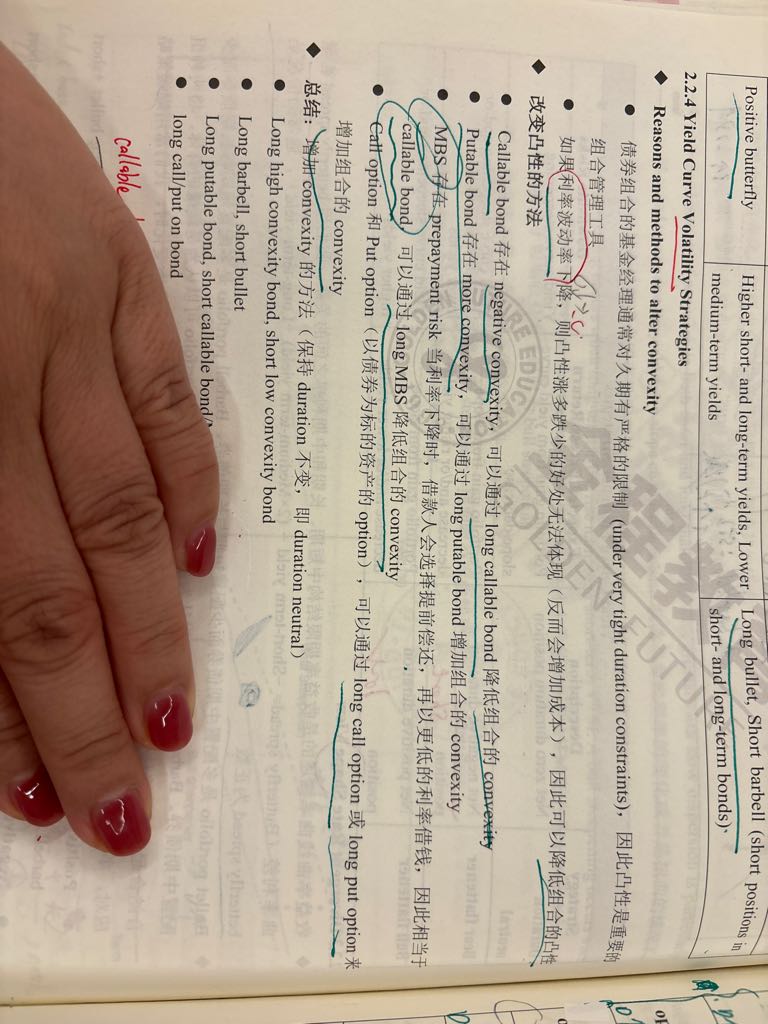 Positive butterfly
Higher short- and long-term yields, Lower
medium-term yields
Long bullet, Short barbell (short positions in
short- and long-term bonds),
2.2.4 Yield Curve Volatility Strategies
◆ Reasons and methods to alter convexity
● 债券组合的基金经理通常对久期有严格的限制 (under very tight duration constraints)，因此凸性是重要的
组合管理工具
● 如果利率波动率下降，则凸性涨多跌少的好处无法体现（反而会增加成本），因此可以降低组合的凸性
◆ 改变凸性的方法
● Callable bond 存在 negative convexity，可以通过 long callable bond 降低组合的 convexity
● Putable bond 存在 more convexity，可以通过 long putable bond 增加组合的 convexity
● MBS 存在 prepayment risk 当利率下降时，借款人会选择提前偿还，再以更低的利率借钱，因此相当于
callable bond，可以通过 long MBS 降低组合的 convexity
● Call option 和 Put option（以债券为标的资产的 option），可以通过 long call option 或 long put option 来
增加组合的 convexity
◆ 总结：增加 convexity 的方法（保持 duration 不变，即 duration neutral）
● Long high convexity bond, short low convexity bond
● Long barbell, short bullet
● Long putable bond, short callable bond/
● long call/put on bond
callable